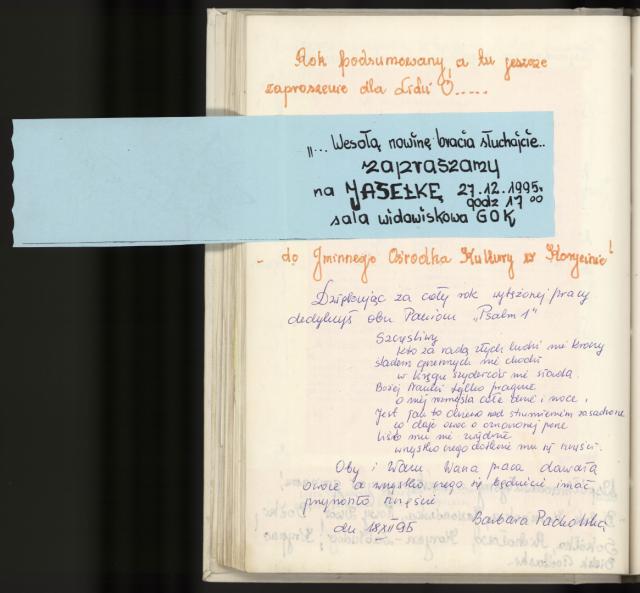 Rok podsumowany, a tu jeszcze
zaproszenie dla Lidii O.....
„... Wesołą nowinę bracia słuchajcie..
zapraszamy
na JASEŁKĘ 27.12.1995r.
godz 17 00
sala widowiskowa GOK
- do Gminnego Ośrodka Kultury w Korycinie!
Dziękując za cały rok wytężonej pracy
dedykuję obu Paniom „Psalm 1"
Szczęśliwy
kto za radą złych ludzi nie kroczy
śladem grzesznych nie chodzi
w kręgu szyderców nie siada.
Bożej Nauki tylko pragnie
o niej rozmyśla całe dnie i noce,
Jest jak to drzewo nad strumieniem zasadzone
co daje owoc o oznaczonej porze
liście mu nie więdną
wszystko czego dotknie mu się szczęści.
Oby i Wam Wasza praca dawała
owoce a wszystko czego się będziecie imać
przynosiło szczęście
Barbara Pacholska
dn 18 XII 95